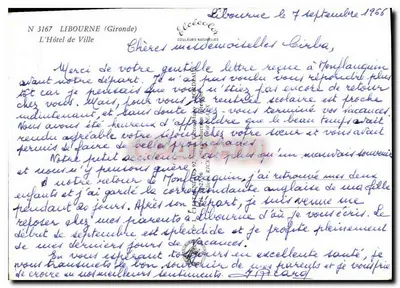 N 3167 LIBOURNE (Gironde)
L'Hôtel de Ville
Libourne le 7 septembre 1966
Chères mesdemoiselles
Merci de votre gentille lettre reçue à Monflanquin
avant notre départ. Je n'ai pas voulu vous répondre plus
tôt car je pensais que vous n'étiez pas encore de retour
chez vous. Mais, pour vous la rentrée scolaire est proche
maintenant, et sans doute avez-vous terminé vos vacances.
Nous avons été heureux d'apprendre que le beau temps avait
rendu agréable votre séjour chez votre sœur et vous avait
permis de faire de belles promenades.
Notre petit accident n'est plus qu'un mauvais souvenir
et nous n'y pensons guère.
A notre retour de Monflanquin, j'ai retrouvé mes deux
enfants et j'ai gardé la correspondante anglaise de ma fille
pendant jours. Après son départ, je suis venue me
reposer chez mes parents à Libourne d'où je vous écris. Le
début de septembre est splendide et je profite pleinement
de mes derniers jours de vacances.
En vous espérant toujours en excellente santé, je
vous transmets le bon souvenir de mes parents et je vous prie
de croire en mes meilleurs sentiments.